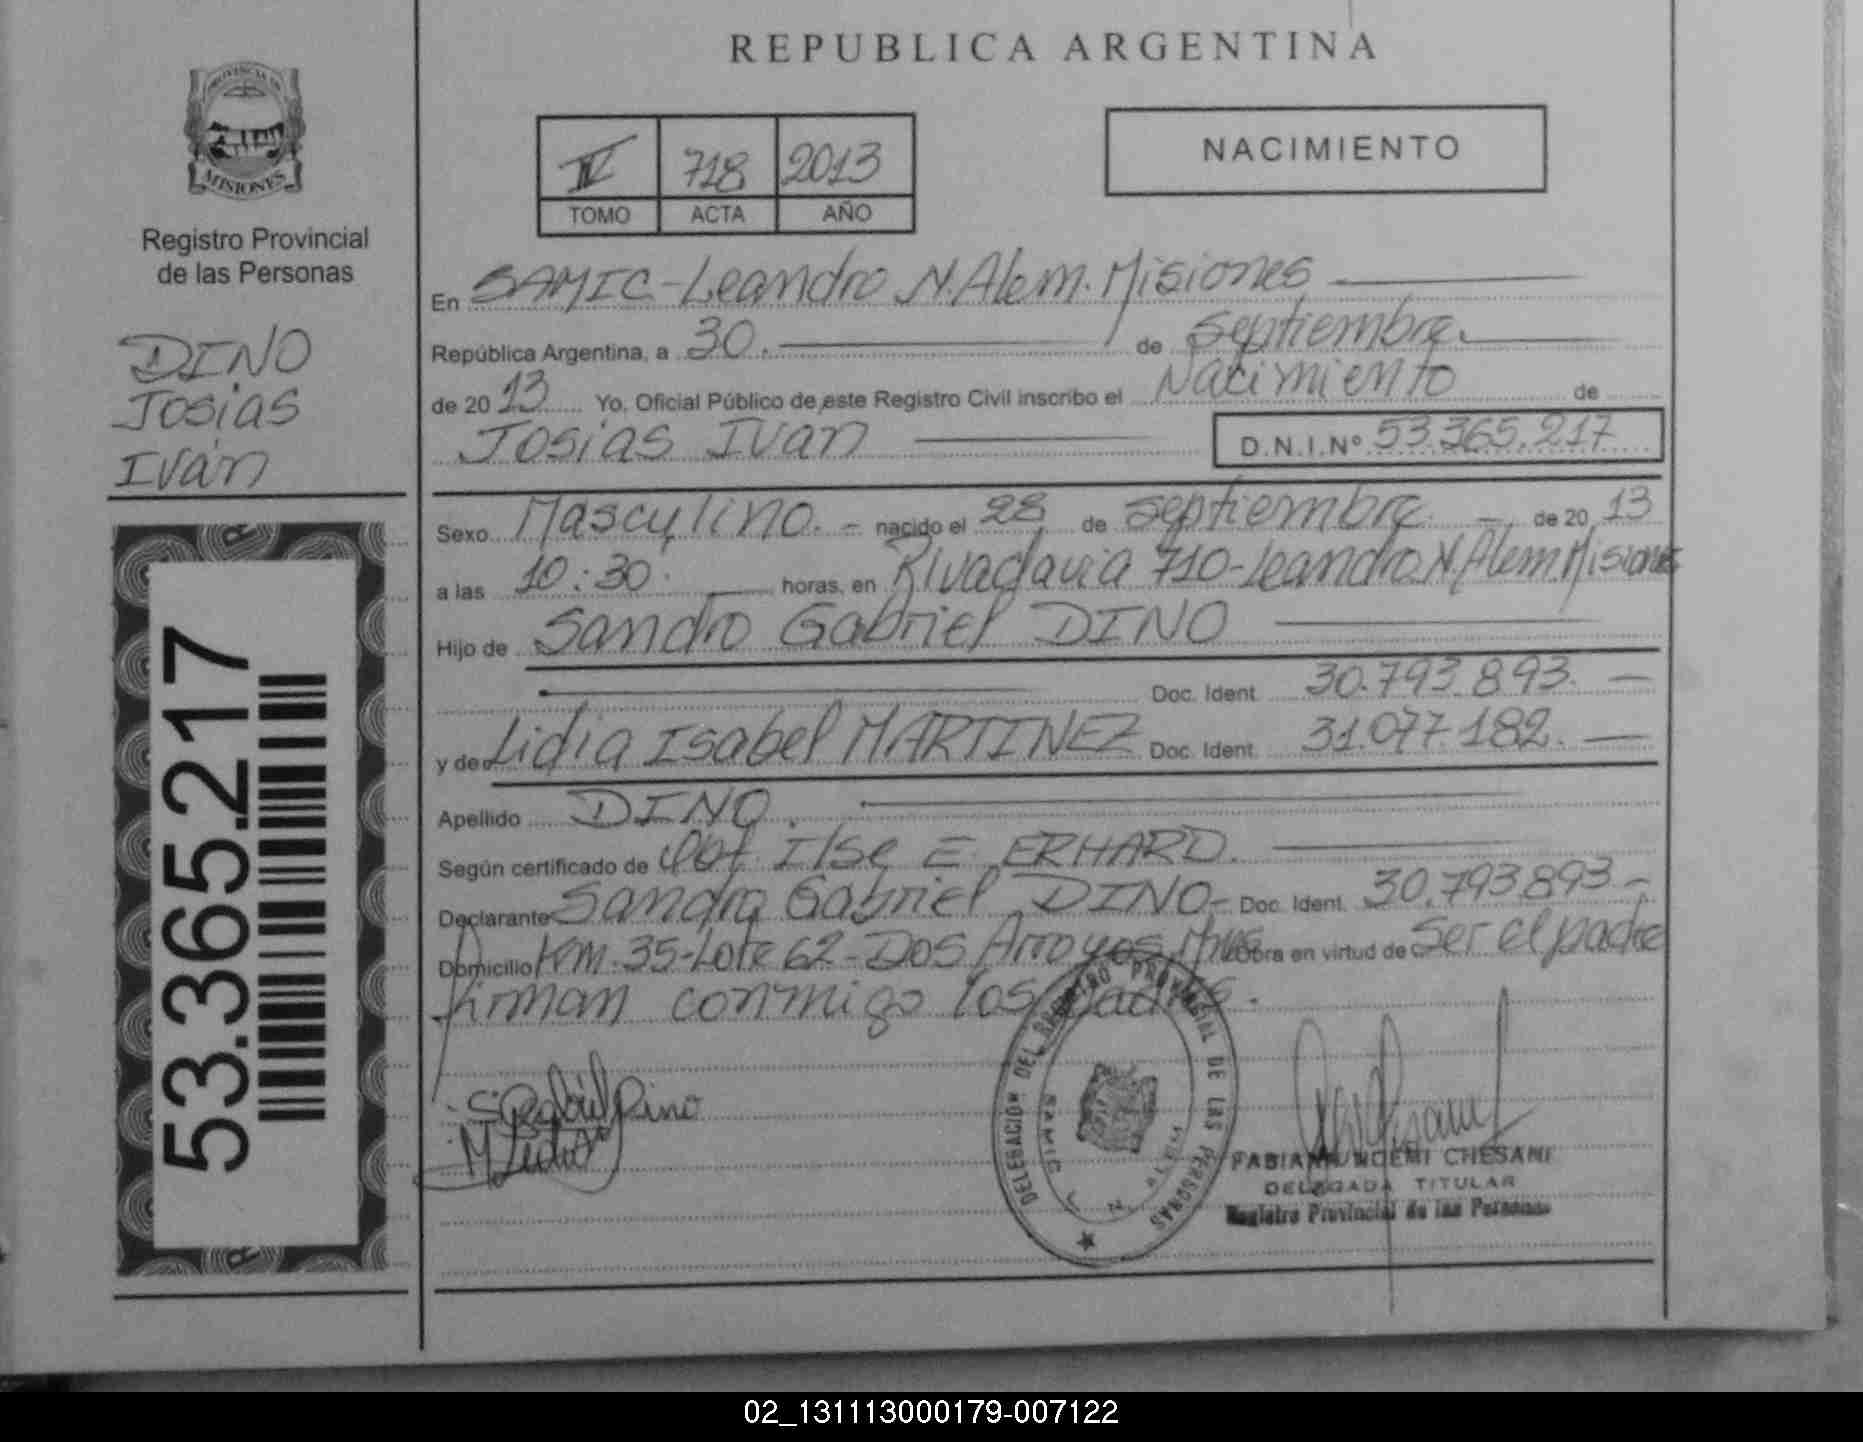 REPUBLICA ARGENTINA
PROVINCIA DE
MISIONES
Registro Provincial
de las Personas
DINO
Josias
Iván
53.365.217
IV 718 2013
TOMO ACTA AÑO
NACIMIENTO
En SAMIC-Leandro N. Alem. Misiones
República Argentina, a 30. de Septiembre
de 2013 Yo, Oficial Público de este Registro Civil inscribo el Nacimiento de
Josias Ivan D.N.I.Nº 53.365.217
Sexo Masculino. - nacido el 28 de septiembre. - de 2013
a las 10:30 horas, en Rivadavia 710-Leandro N. Alem. Misiones
Hijo de Sandro Gabriel DINO
Doc. Ident. 30.793.893. -
y de Lidia Isabel MARTINEZ Doc. Ident. 31.077.182. -
Apellido DINO.
Según certificado de Obst. Ilse E. ERHARD.
Declarante Sandro Gabriel DINO- Doc. Ident. 30.793.893-
Domicilio Km. 35-Lote 62-Dos Arroyos, Mnes obra en virtud de Ser el padre
firman conmigo los padres.
S Gabriel Dino
M Lidia
DELEGACIÓN DEL REGISTRO PROVINCIAL DE LAS PERSONAS
SAMIC L. N.
FABIANA NOEMI CHESANI
DELEGADA TITULAR
Registro Provincial de las Personas
02_131113000179-007122